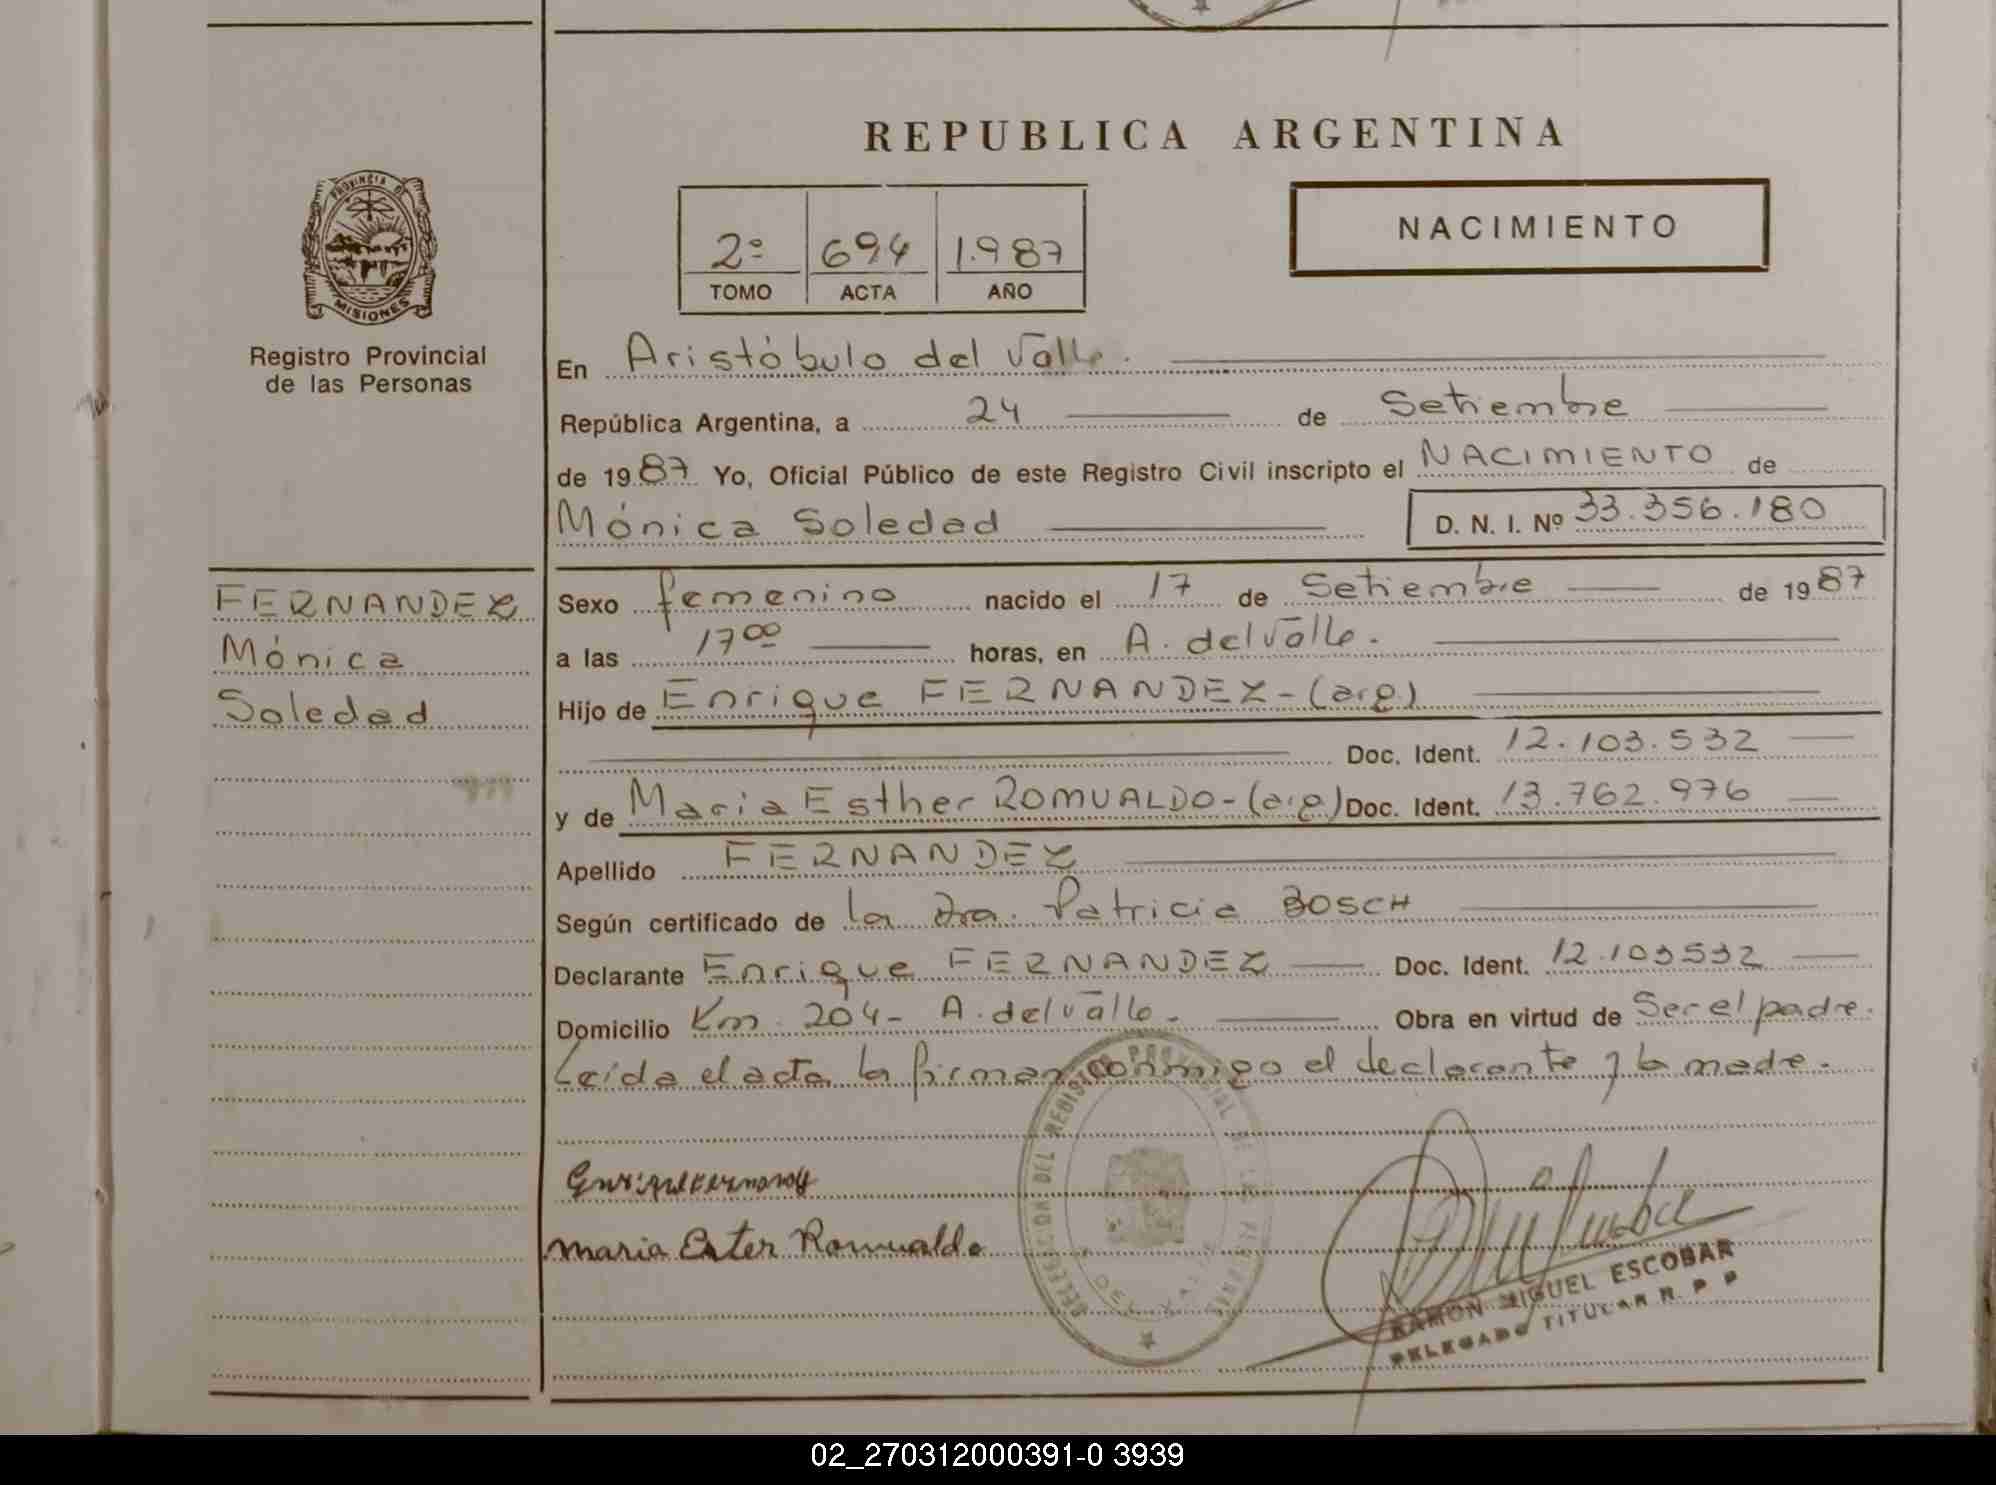 REPUBLICA ARGENTINA
NACIMIENTO
2º 694 1.987
TOMO ACTA AÑO
PROVINCIA DE
MISIONES
Registro Provincial
de las Personas
FERNANDEZ
Mónica
Soledad
En Aristóbulo del Valle.
República Argentina, a 24 de Setiembre
de 1987 Yo, Oficial Público de este Registro Civil inscripto el NACIMIENTO de
Mónica Soledad D. N. I. Nº 33.356.180
Sexo femenino nacido el 17 de Setiembre de 1987
a las 17 00 horas, en A. del Valle.
Hijo de Enrique FERNANDEZ-(arg)
Doc. Ident. 12.103.532
y de Maria Esther ROMUALDO-(arg) Doc. Ident. 13.762.976
Apellido FERNANDEZ
Según certificado de la Dra. Patricia BOSCH
Declarante Enrique FERNANDEZ Doc. Ident. 12.103532
Domicilio Km. 204- A. del Valle. Obra en virtud de Ser el padre.
Leída el acta la firman conmigo el declarante y la madre.
maria Ester Romualdo
DELEGACION DEL REGISTRO PROVINCIAL DE LAS PERSONAS
DEL VALLE
RAMON MIGUEL ESCOBAR
DELEGADO TITULAR R. P. P
02_270312000391-0 3939